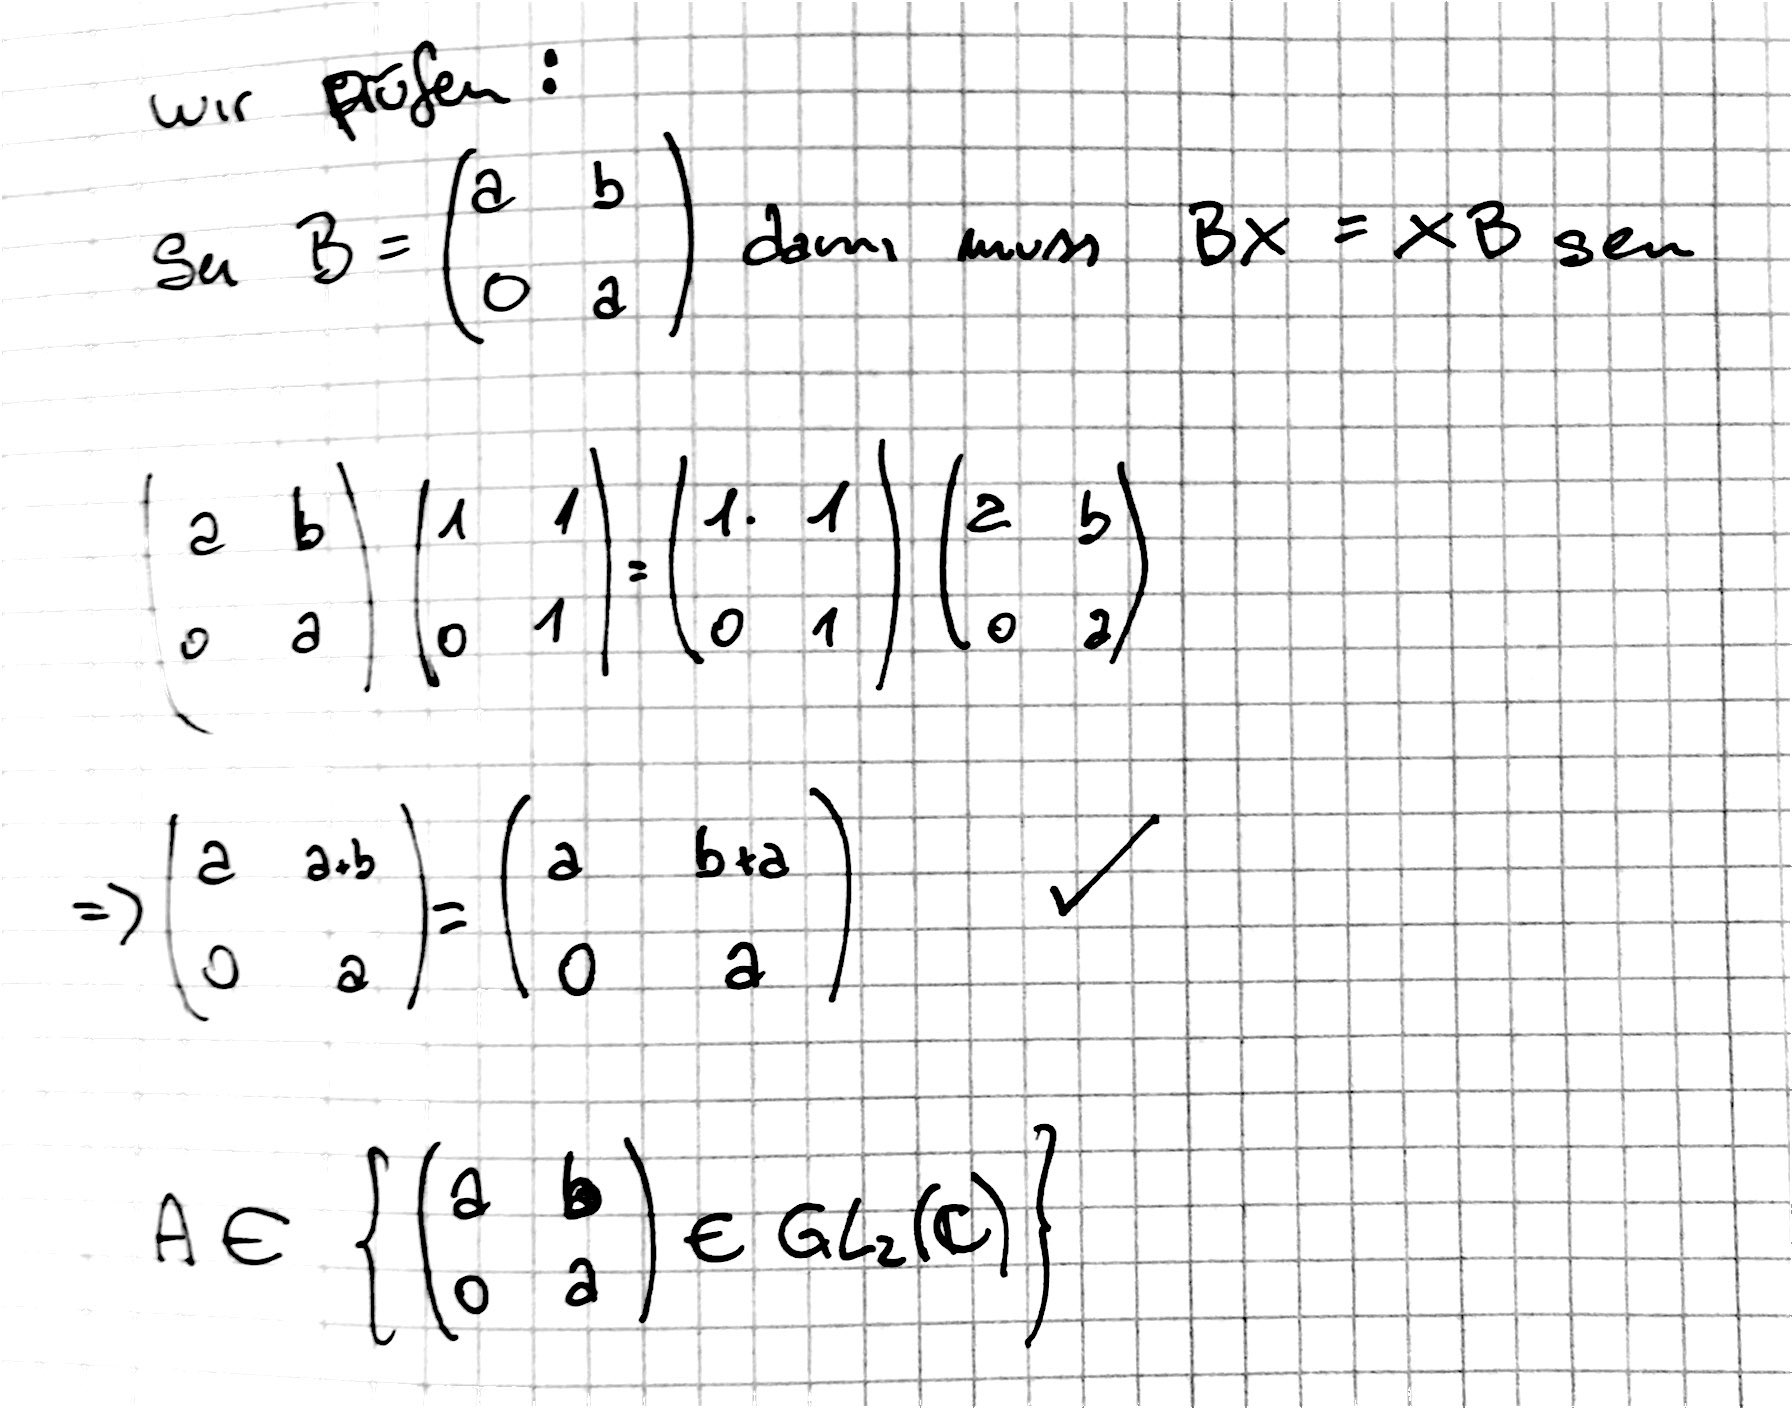 wir prüfen:
Sei B = (a b; 0 a) dann muss BX = XB sein
(a b; 0 a) (1 1; 0 1) = (1. 1; 0 1) (a b; 0 a)
=> (a a+b; 0 a) = (a b+a; 0 a) ✓
A ∈ { (a b; 0 a) ∈ GL₂(ℂ) }